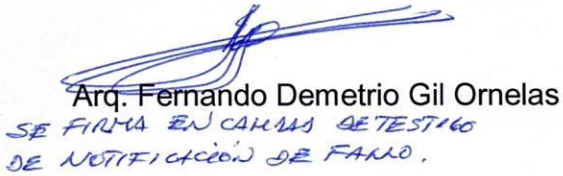 Arq. Fernando Demetrio Gil Ornelas
SE FIRMA EN CALIDAD DE TESTIGO
DE NOTIFICACIÓN DE FALLO.